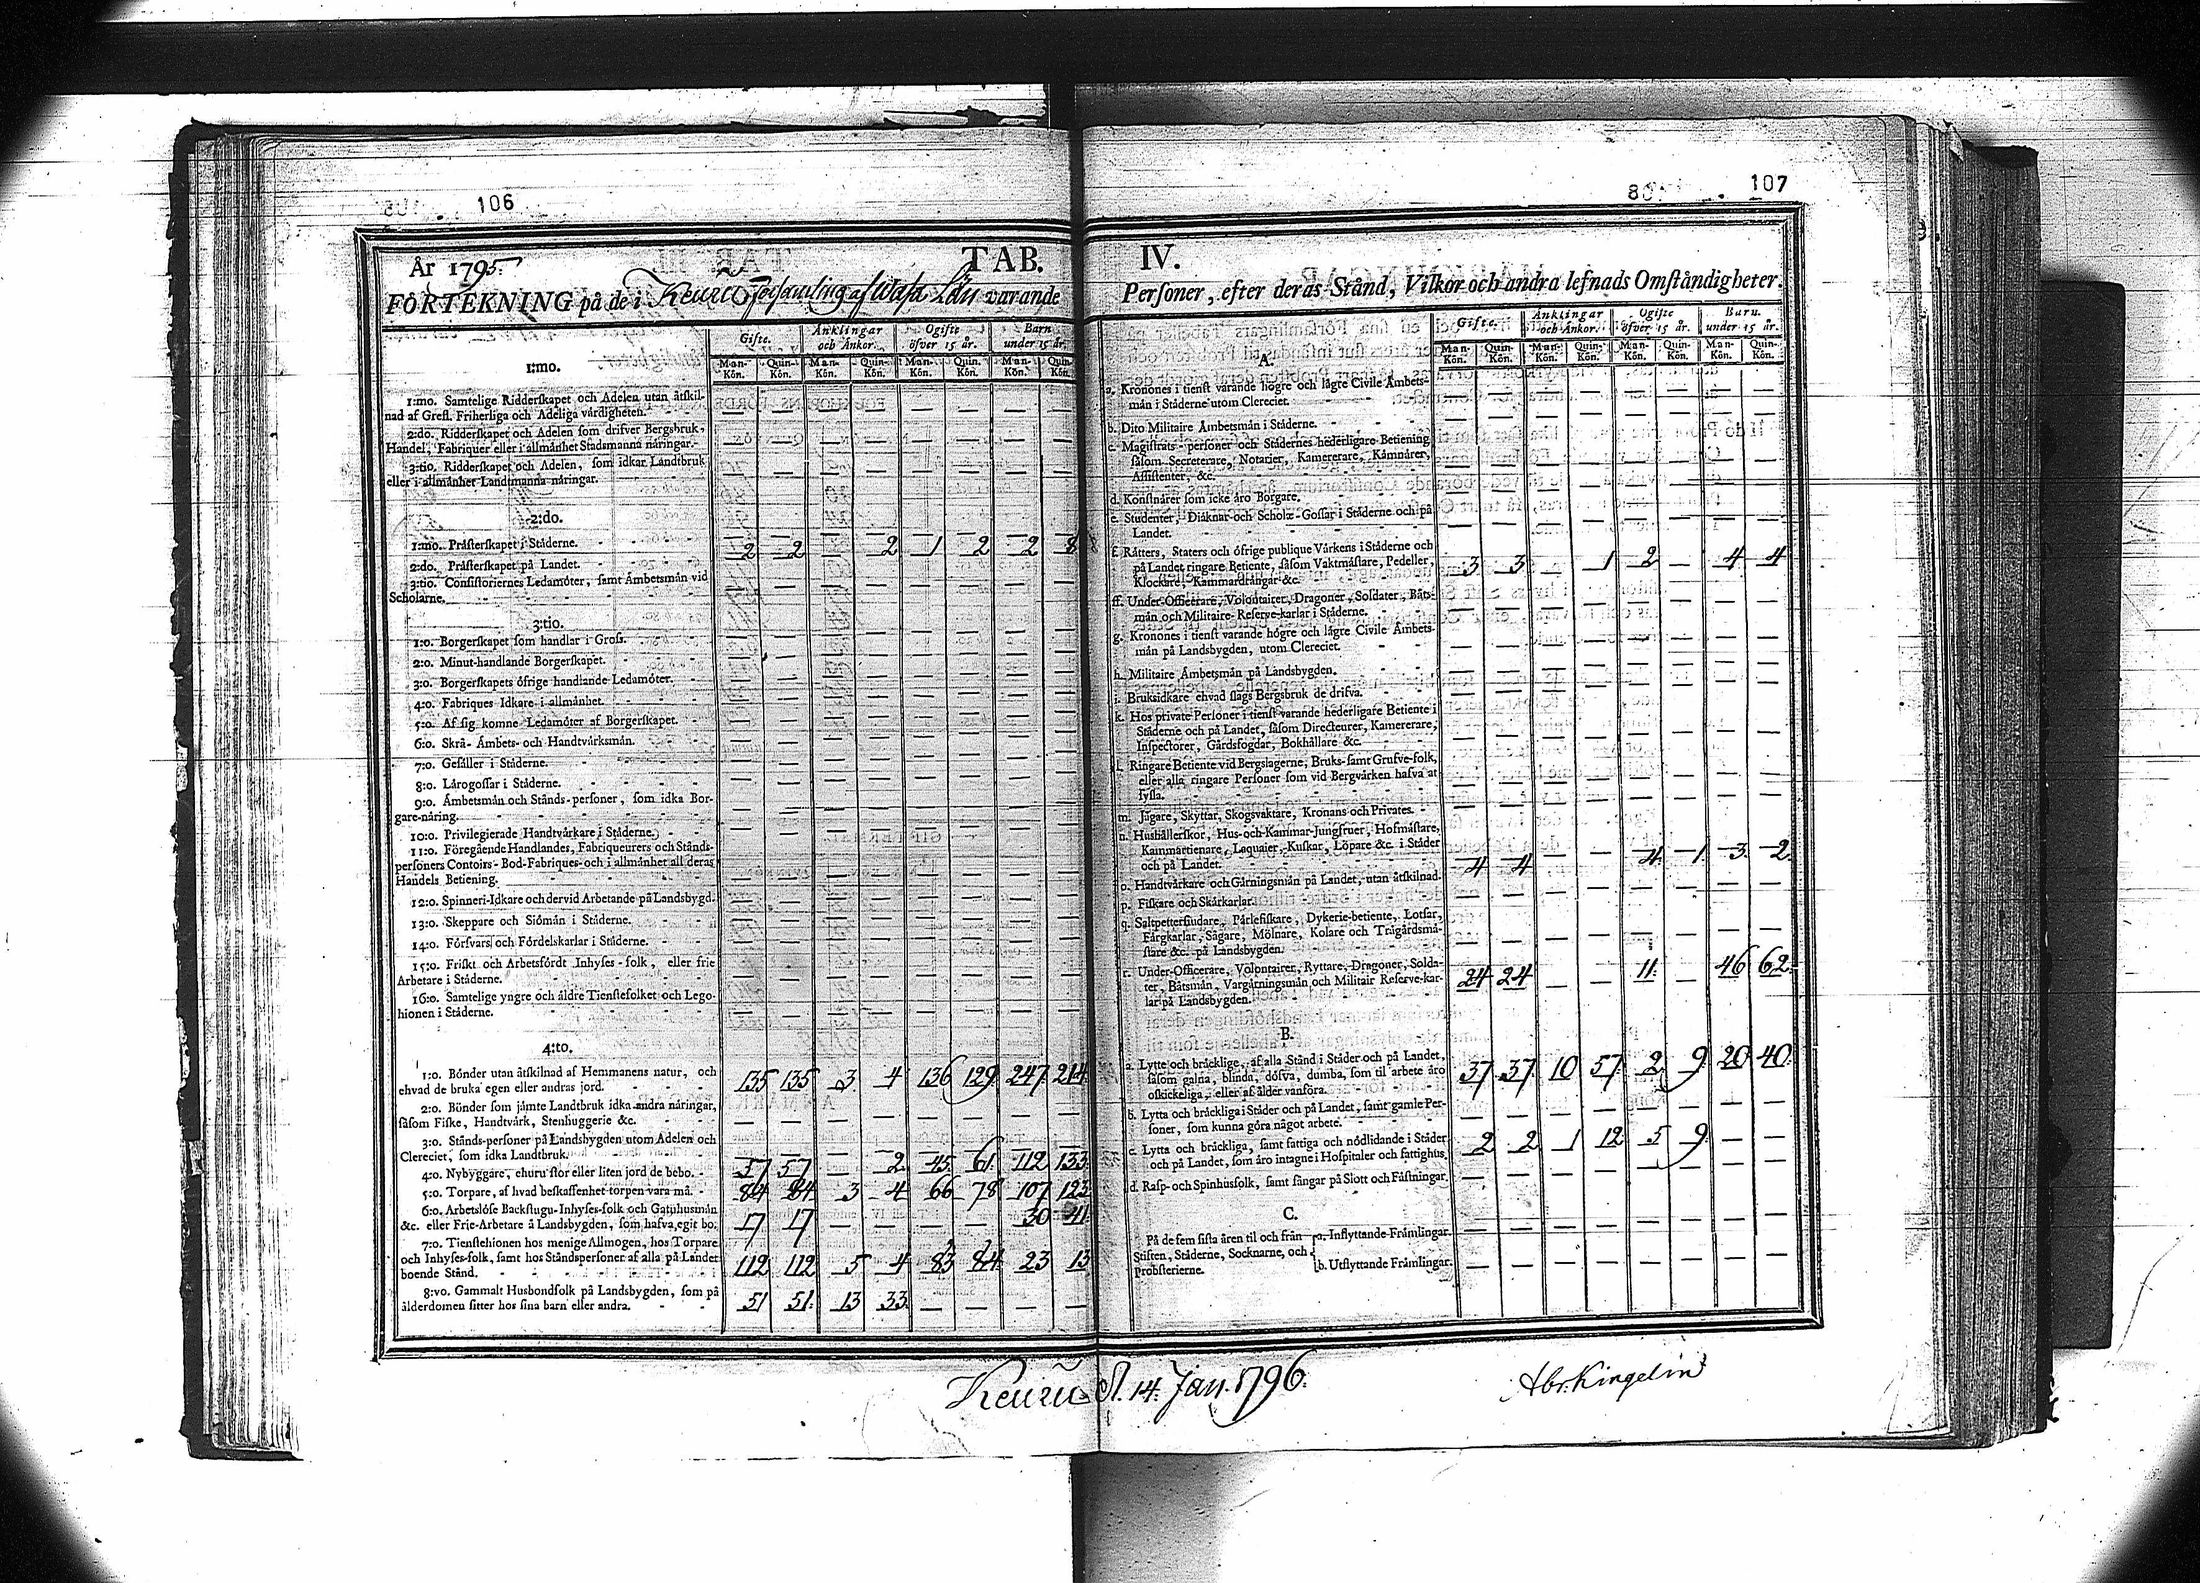 106
År 1795.
TAB.
FÖRTEKNING på de i Keuru Församling af Wasa Län varande
Gifte. Änklingar och Änkor. Ogifte öfver 15 år. Barn under 15 år.
Man-Kön. Quin-Kön. Man-Kön. Quin-Kön. Man-Kön. Quin-Kön. Man-Kön. Quin-Kön.
1:mo.
1:mo. Samtelige Ridderskapet och Adelen utan åtskil-
nad af Grefl. Friherliga och Adeliga värdigheten. — — — — — — — —
2:do. Ridderskapet och Adelen som drifver Bergsbruk,
Handel, Fabriquer eller i allmånhet Stadsmanna nåringar. — — — — — — — —
3:tio. Ridderskapet och Adelen, som idkar Landtbruk
eller i allmånhet Landtmanna nåringar. — — — — — — — —
2:do.
1:mo. Pråsterskapet i Ståderne. 2 2 — 2 1 2 2 8
2:do. Pråsterskapet på Landet.
3:tio. Consistoriernes Ledamöter, samt Åmbetsmån vid
Scholarne. — — — — — — — —
3:tio.
1:o. Borgerskapet som handlar i Gross. — — — — — — — —
2:o. Minut-handlande Borgerskapet. — — — — — — — —
3:o. Borgerskapets öfrige handlande Ledamöter. — — — — — — — —
4:o. Fabriques Idkare i allmånhet. — — — — — — — —
5:o. Af sig komne Ledamöter af Borgerskapet. — — — — — — — —
6:o. Skrå- Åmbets- och Handtvårksmån. — — — — — — — —
7:o. Gesåller i Ståderne. — — — — — — — —
8:o. Lårogossar i Ståderne. — — — — — — — —
9:o. Åmbetsmån och Stånds-personer, som idka Bor-
gare-nåring. — — — — — — — —
10:o. Privilegierade Handtvårkare i Ståderne. — — — — — — — —
11:o. Föregående Handlandes, Fabriqueurers och Stånds-
personers Contoirs- Bod-Fabriques-och i allmånhet all deras
Handels Betiening. — — — — — — — —
12:o. Spinneri-Idkare och dervid Arbetande på Landsbygd. — — — — — — — —
13:o. Skeppare och Siömån i Ståderne. — — — — — — — —
14:o. Försvars och Fördelskarlar i Ståderne. — — — — — — — —
15:o. Friskt och Arbetsfördt Inhyses-folk, eller frie
Arbetare i Ståderne. — — — — — — — —
16:o. Samtelige yngre och åldre Tienstefolket och Lego-
hionen i Ståderne. — — — — — — — —
4:to.
1:o. Bönder utan åtskilnad af Hemmanens natur, och
ehvad de bruka egen eller andras jord. 135 135 3 4 136 129 247 214
2:o. Bönder som jåmte Landtbruk idka andra nåringar,
såsom Fiske, Handtvårk, Stenhuggerie &c. — — — — — — — —
3:o. Stånds-personer på Landsbygden utom Adelen och
Clereciet, som idka Landtbruk. — — — — — — — —
4:o. Nybyggare, ehuru stor eller liten jord de bebo. 57 57 — 2 45 61 112 133
5:o. Torpare, af hvad beskaffenhet torpen vara må. 84 84 3 4 66 78 107 123
6:o. Arbetslöse Backstugu-Inhyses-folk och Gatuhusmån
&c. eller Frie-Arbetare å Landsbygden, som hafva egit bo. 17 17 — — — — 30 41
7:o. Tienstehionen hos menige Allmogen, hos Torpare
och Inhyses-folk, samt hos Ståndspersoner af alla på Landet
boende Stånd. 112 112 5 4 83 84 23 13
8:vo. Gammalt Husbondfolk på Landsbygden, som på
ålderdomen sitter hos sina barn eller andra. 51 51 13 33 — — — —
107
IV.
Personer, efter deras Stånd, Vilkor och andra lefnads Omståndigheter.
Gifte. Änklingar och Änkor. Ogifte öfver 15 år. Barn. under 15 år.
Man-Kön. Quin-Kön. Man-Kön. Quin-Kön. Man-Kön. Quin-Kön. Man-Kön. Quin-Kön.
A.
a. Kronones i tienst varande högre och lågre Civile Åmbets-
mån i Ståderne utom Clereciet. — — — — — — — —
b. Dito Militaire Åmbetsmån i Ståderne. — — — — — — — —
c. Magistrats-personer och Stådernes hederligare Betiening
såsom Secreterare, Notarier, Kamererare, Kåmnårer,
Assistenter, &c. — — — — — — — —
d. Konstnårer som icke åro Borgare. — — — — — — — —
e. Studenter, Diåknar och Scholæ-Gossar i Ståderne och på
Landet. — — — — — — — —
f. Råtters, Staters och öfrige publique Vårkens i Ståderne och
på Landet ringare Betiente, såsom Vaktmåstare, Pedeller,
Klockare, Kammardrångar &c. 3 3 — 1 2 — 4 4
ff. Under-Officerare, Volontairer, Dragoner, Soldater, Båts-
mån och Militaire-Reserve-karlar i Ståderne. — — — — — — — —
g. Kronones i tienst varande högre och lågre Civile Åmbets-
mån på Landsbygden, utom Clereciet. — — — — — — — —
h. Militaire Åmbetsmån på Landsbygden. — — — — — — — —
i. Bruksidkare ehvad slags Bergsbruk de drifva. — — — — — — — —
k. Hos private Personer i tienst varande hederligare Betiente i
Ståderne och på Landet, såsom Directeurer, Kamererare,
Inspectorer, Gårdsfogdar, Bokhållare &c. — — — — — — — —
l. Ringare Betiente vid Bergslagerne, Bruks-samt Grufve-folk,
eller alla ringare Personer som vid Bergvårken hafva at
syssla. — — — — — — — —
m. Jågare, Skyttar, Skogsvaktare, Kronans och Privates. — — — — — — — —
n. Hushållerskor, Hus-och-Kammar-Jungfruer, Hofmåstare,
Kammartienare, Laquaier, Kuskar, Löpare &c. i Ståder
och på Landet. — — — — — — — —
o. Handtvårkare och Gårningsmån på Landet, utan åtskilnad. 4 4 — — 4 1 3 2
p. Fiskare och Skårkarlar. — — — — — — — —
q. Saltpettersiudare, Pårlefiskare, Dykerie-betiente, Lotsar,
Fårgkarlar, Sågare, Mölnare, Kolare och Trågårdsmå-
stare &c. på Landsbygden. — — — — — — — —
r. Under-Officerare, Volontairer, Ryttare, Dragoner, Solda-
ter, Båtsmån, Vargåringsmån och Militair Reserve-kar-
lar på Landsbygden. 24 24 — — 11 — 46 62
B.
a. Lytte och bråcklige, af alla Stånd i Ståder och på Landet,
såsom galna, blinda, döfva, dumba, som til arbete åro
oskickeliga, eller af ålder vanföra. 37 37 10 57 2 9 20 40
b. Lytta och bråckliga i Ståder och på Landet, samt gamle Per-
soner, som kunna göra något arbete. — — — — — — — —
c. Lytta och bråckliga, samt fattiga och nödlidande i Ståder
och på Landet, som åro intagne i Hospitaler och fattighus. 2 2 1 12 5 9 — —
d. Rasp- och Spinhusfolk, samt fångar på Slott och Fåstningar. — — — — — — — —
C.
På de fem sista åren til och från
Stiften, Ståderne, Socknarne, och
Probsterierne.
a. Inflyttande Fråmlingar. — — — — — — — —
b. Utflyttande Fråmlingar. — — — — — — — —
Keuru d. 14. Jan. 1796.
Abr. Kingelin